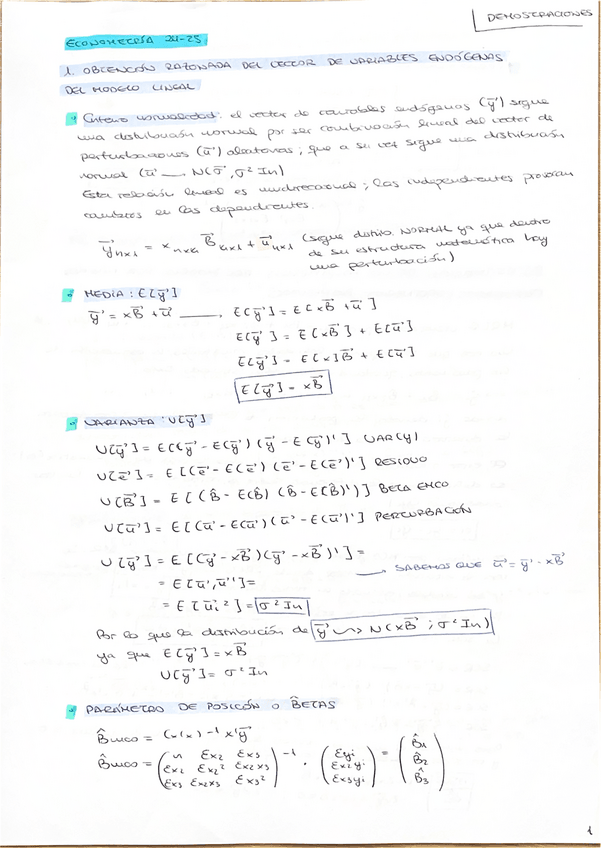 DEMOSTRACIONES
ECONOMETRÍA 24-25
1. OBTENCIÓN RAZONADA DEL VECTOR DE VARIABLES ENDÓGENAS
DEL MODELO LINEAL
Criterio normalidad: el vector de variables endógenas (y⃗) sigue
una distribución normal por ser combinación lineal del vector de
perturbaciones (u⃗) aleatorias; que a su vez sigue una distribución
normal (u⃗ → N(0⃗, σ² In)
Esta relación lineal es unidireccional; las independientes provocan
cambios en las dependientes.
y⃗nx1 = xnxk B⃗kx1 + u⃗nx1 (sigue distrib. NORMAL ya que dentro
de su estructura matemática hay
una perturbación)
MEDIA: E[y⃗]
y⃗ = xB⃗ + u⃗ → E[y⃗] = E[xB⃗ + u⃗]
E[y⃗] = E[xB⃗] + E[u⃗]
E[y⃗] = E[x]B⃗ + E[u⃗]
E[y⃗] = xB⃗
VARIANZA: V[y⃗]
V[y⃗] = E[(y⃗ - E(y⃗)) (y⃗ - E(y⃗)'] VAR(y)
V[e⃗] = E[(e⃗ - E(e⃗) (e⃗ - E(e⃗)'] RESIDUO
V[B⃗] = E[(B̂ - E(B̂) (B̂ - E(B̂)')] BETA EMCO
V[u⃗] = E[(u⃗ - E(u⃗) (u⃗ - E(u⃗)'] PERTURBACIÓN
V[y⃗] = E[(y⃗ - xB⃗)(y⃗ - xB⃗)'] =
= E[u⃗, u⃗'] =
→ SABEMOS QUE u⃗ = y⃗ - xB⃗
= E[u⃗i²] = σ² In
Por lo que la distribución de y⃗ ↝ N(xB⃗ ; σ² In)
ya que E[y⃗] = xB⃗
V[y⃗] = σ² In
PARÁMETRO DE POSICÓN O B̂ETAS
B̂MCO = (x'x)⁻¹ x'y⃗
B̂MCO = (n Σx2 Σx3)⁻¹ · (Σyi) = (B̂1)
(Σx2 Σx2² Σx2x3) (Σx2yi) (B̂2)
(Σx3 Σx2x3 Σx3²) (Σx3yi) (B̂3)
1